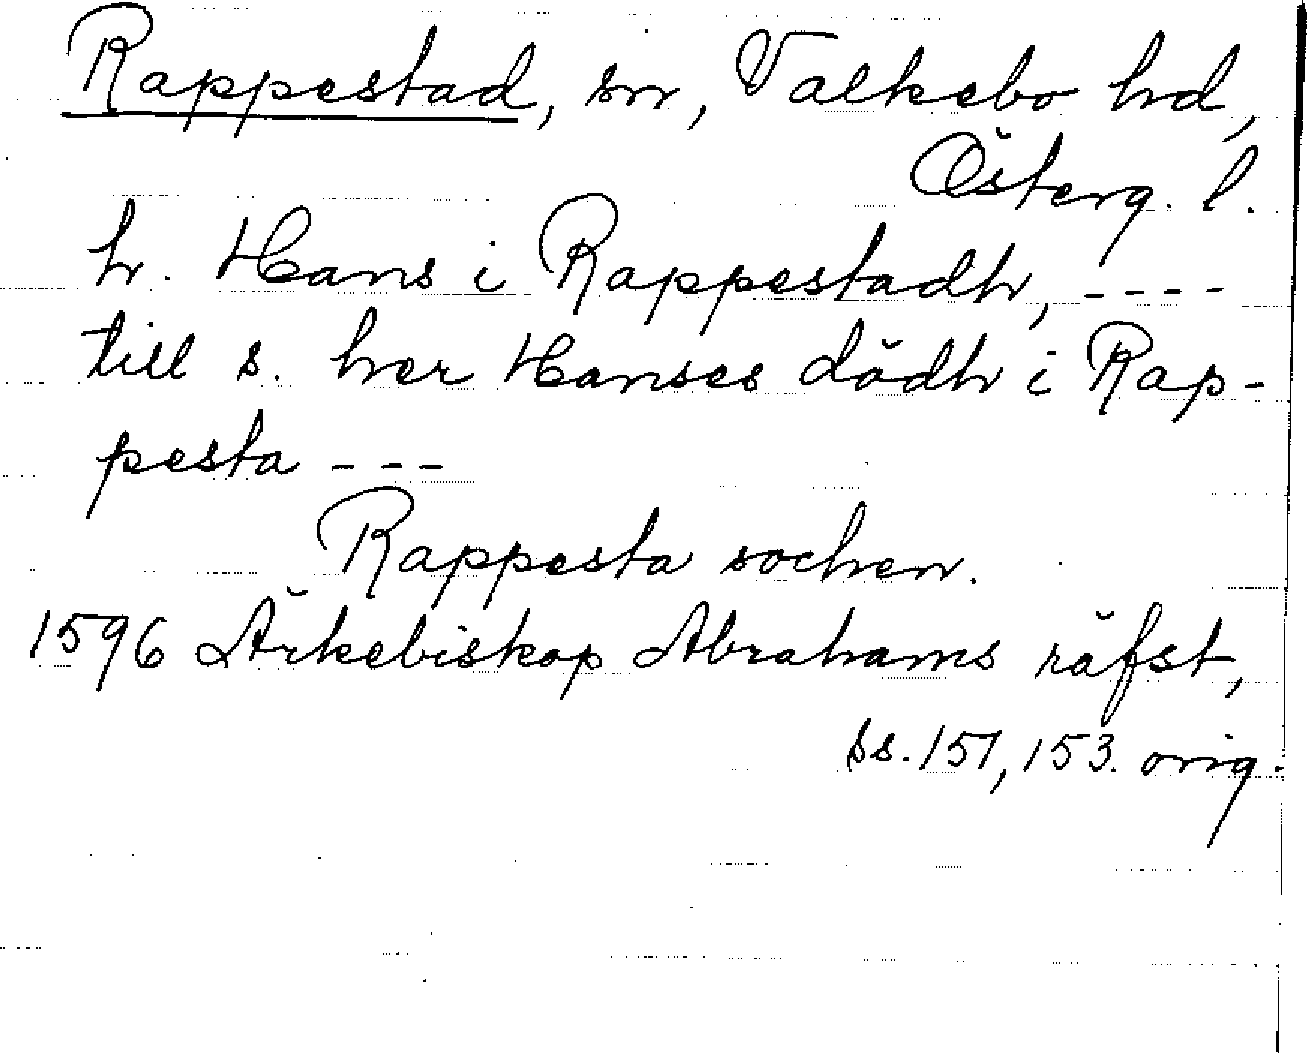 Rappestad, sn, Valkebo hd,
Österg. l.
h. Hans i Rappestadh, ----
till s. her Hanses dödh i Rap-
pesta ---
Rappesta sochen.
1596 Ärkebiskop Abrahams räfst,
ss. 151, 153. orig.